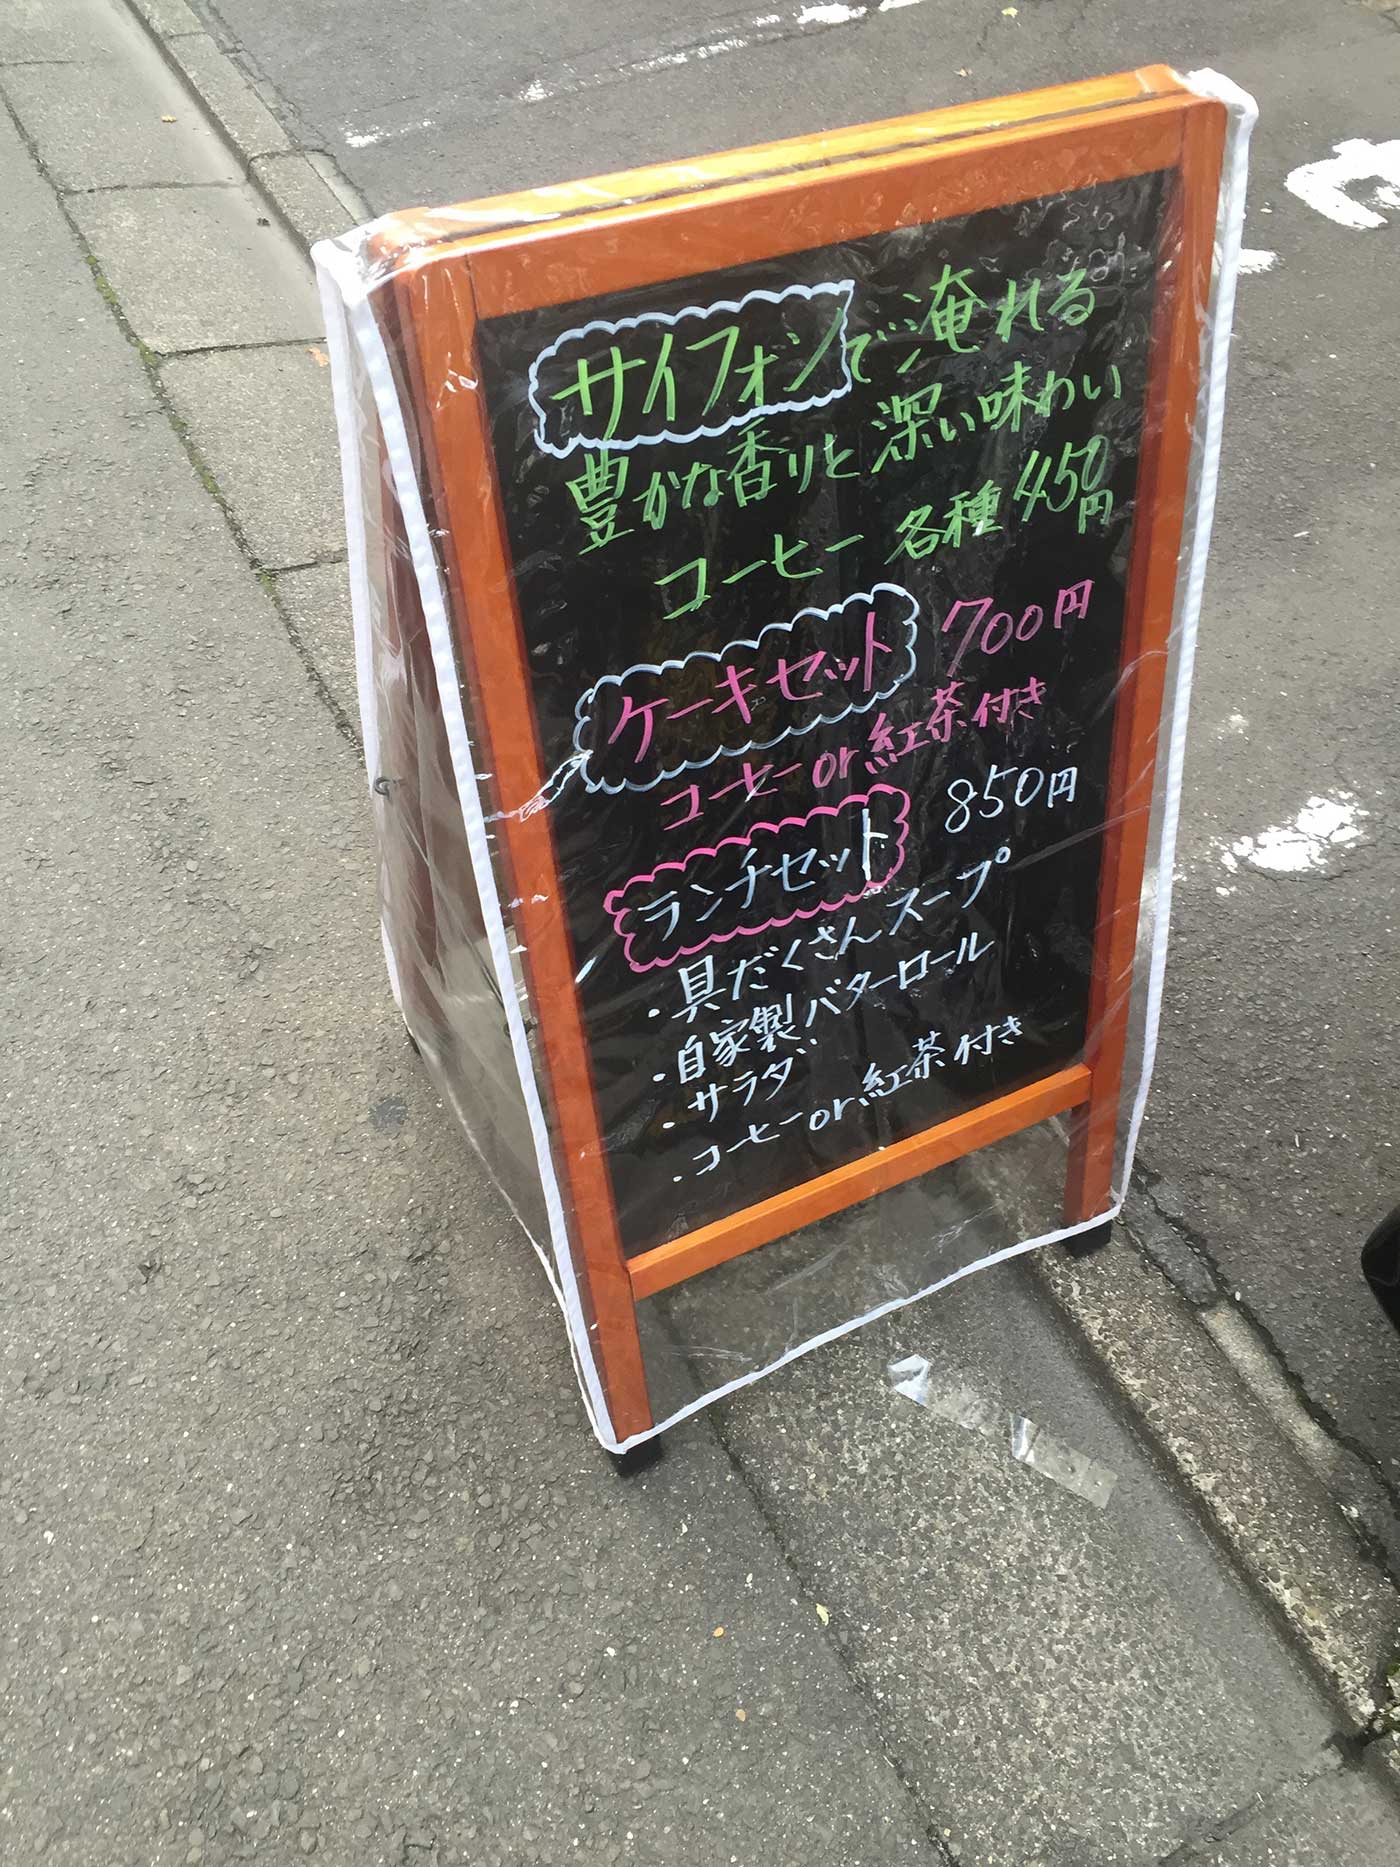 サイフォンで淹れる
豊かな香りと深い味わい
コーヒー 各種 450円
ケーキセット 700円
コーヒーor紅茶付き
ランチセット 850円
・具だくさんスープ
・自家製バターロール
・サラダ
・コーヒーor紅茶付き